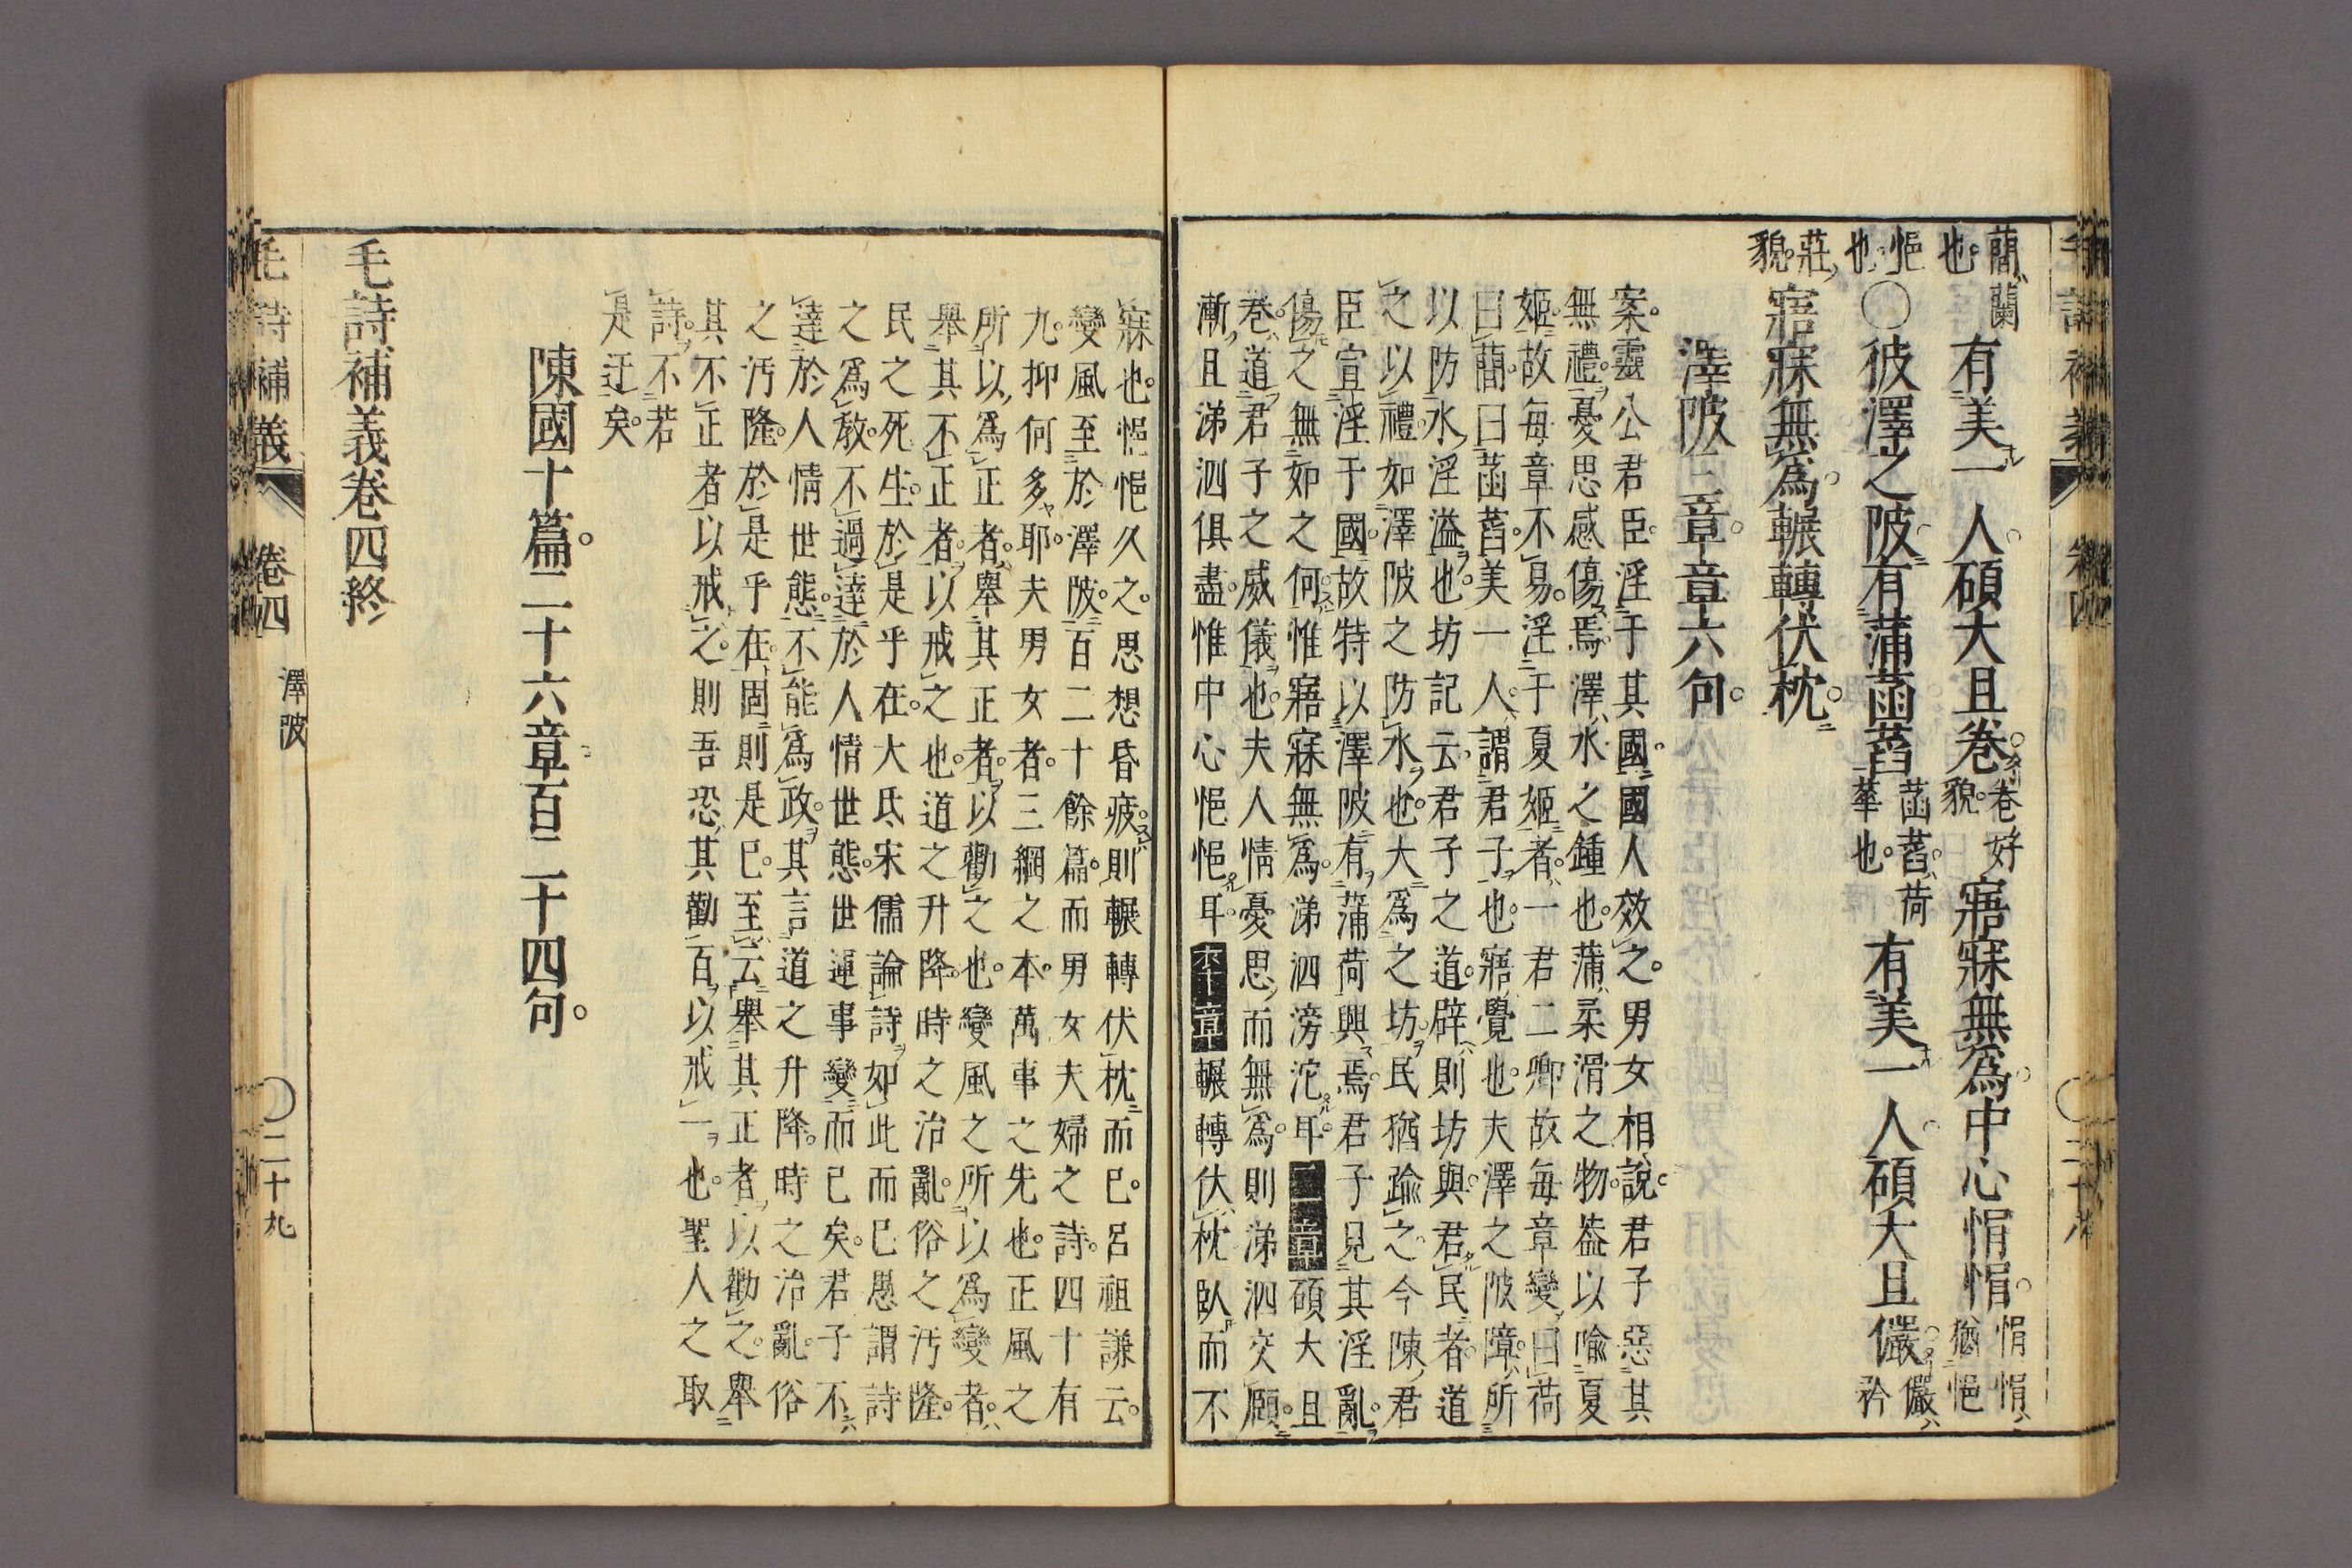 蕑蘭也有美一人碩大且卷卷好貌寤寐無爲中心悁悁悁悁猶悒
悒也○彼澤之陂有蒲菡萏菡萏荷華也有美一人碩大且儼儼矜
莊貌寤寐無爲輾轉伏枕
澤陂三章章六句
案靈公君臣淫于其國國人效之男女相說君子惡其
無禮憂思感傷焉澤水之鍾也蒲柔滑之物葢以喻夏
姬故每章不易淫于夏姬者一君二卿故每章變曰荷
曰蕑曰菡萏美一人謂君子也寤覺也夫澤之陂障所
以防水淫溢也坊記云君子之道辟則坊與君民者道
之以禮如澤陂之防水也大爲之坊民猶踰之今陳君
臣宣淫于國故特以澤陂有蒲荷興焉君子見其淫亂
傷之無如之何惟寤寐無爲涕泗滂沱耳二章碩大且
卷道君子之威儀也夫人情憂思而無爲則涕泗交頤
漸且涕泗俱盡惟中心悒悒耳卒章輾轉伏枕臥而不
寐也悒悒久之思想昏疲則輾轉伏枕而已呂祖謙云
變風至於澤陂百二十餘篇而男女夫婦之詩四十有
九抑何多耶夫男女者三綱之本萬事之先也正風之
所以爲正者舉其正者以勸之也變風之所以爲變者
舉其不正者以戒之也道之升降時之治亂俗之汚隆
民之死生於是乎在大氐宋儒論詩如此而已愚謂詩
之爲教不過達於人情世態世運事變而已矣君子不
達於人情世態不能爲政其言道之升降時之治亂俗
之汚隆於是乎在固則是已至云舉其正者以勸之舉
其不正者以戒之則吾恐其勸百以戒一也聖人之取
詩不若
是迂矣
陳國十篇二十六章百二十四句
毛詩補義卷四終
毛詩補義 卷四 澤陂 〇二十九